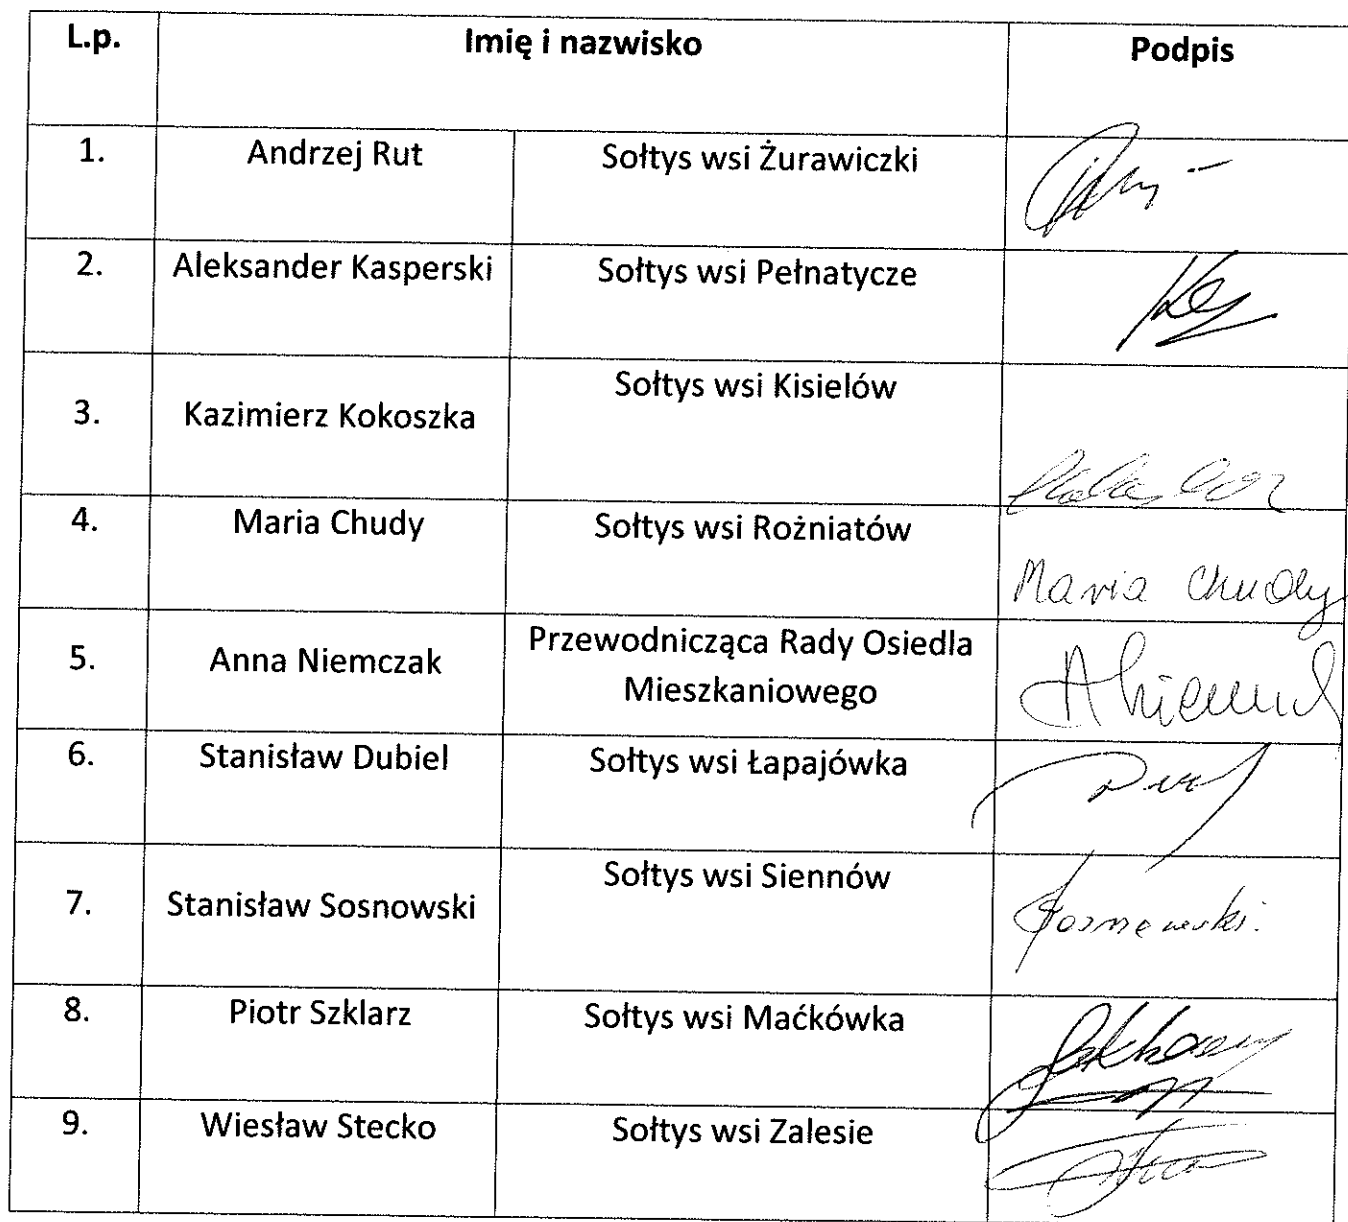 L.p. Imię i nazwisko Podpis
1. Andrzej Rut Sołtys wsi Żurawiczki
2. Aleksander Kasperski Sołtys wsi Pełnatycze
3. Kazimierz Kokoszka Sołtys wsi Kisielów
4. Maria Chudy Sołtys wsi Rożniatów Maria Chudy
5. Anna Niemczak Przewodnicząca Rady Osiedla
Mieszkaniowego
6. Stanisław Dubiel Sołtys wsi Łapajówka
7. Stanisław Sosnowski Sołtys wsi Siennów
8. Piotr Szklarz Sołtys wsi Maćkówka
9. Wiesław Stecko Sołtys wsi Zalesie